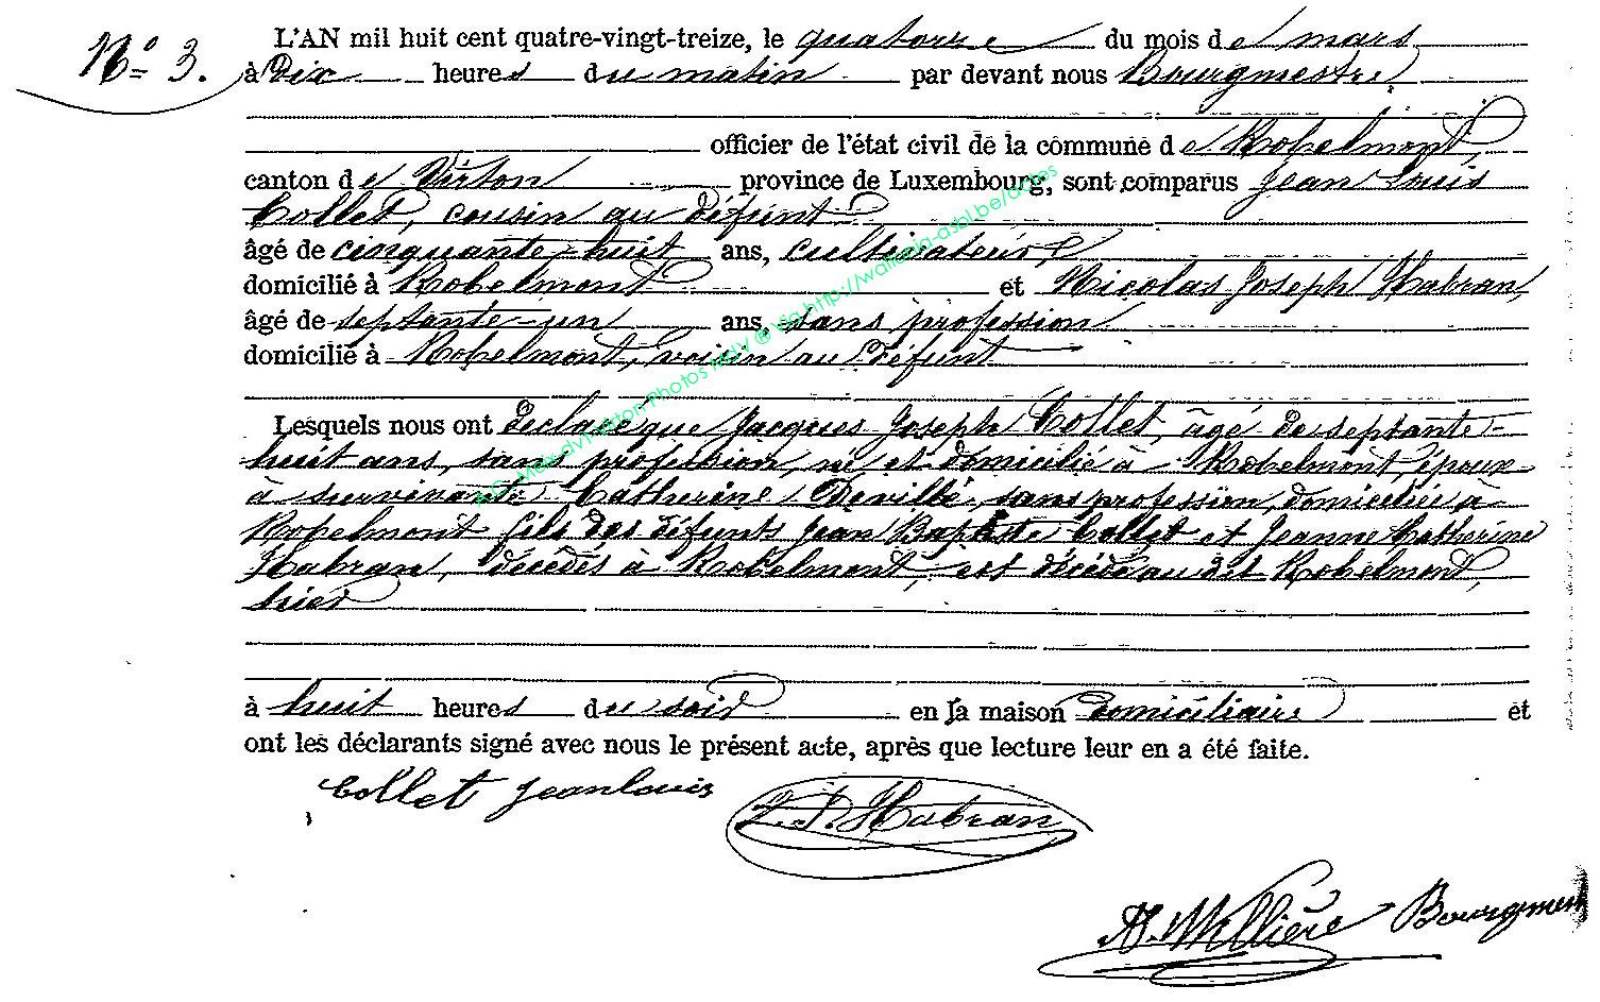 N° 3.
L'AN mil huit cent quatre-vingt-treize, le quatorze du mois de mars
à Dix heures du matin par devant nous Bourgmestre
officier de l'état civil de la commune de Robelmont,
canton de Virton province de Luxembourg, sont comparus Jean Louis
Collet, cousin au défunt
âgé de cinquante-huit ans, cultivateur
domicilié à Robelmont et Nicolas Joseph Habran,
âgé de septante-un ans, sans profession
domicilié à Robelmont, voisin au défunt
Lesquels nous ont déclaré que Jacques Joseph Collet, âgé de septante-
huit ans, sans profession, né et domicilié à Robelmont, époux
à survivante Catherine Deville, sans profession, domiciliée à
Robelmont fils des défunts Jean Baptiste Collet et Jeanne Catherine
Habran, décédés à Robelmont, est décédé au dit Robelmont,
hier
à huit heures du soir en la maison domiciliaire et
ont les déclarants signé avec nous le présent acte, après que lecture leur en a été faite.
Collet Jeanlouis
Habran
Millière Bourgmest
Photos MSLV @ Via http://wallonia-asbl.be/actes